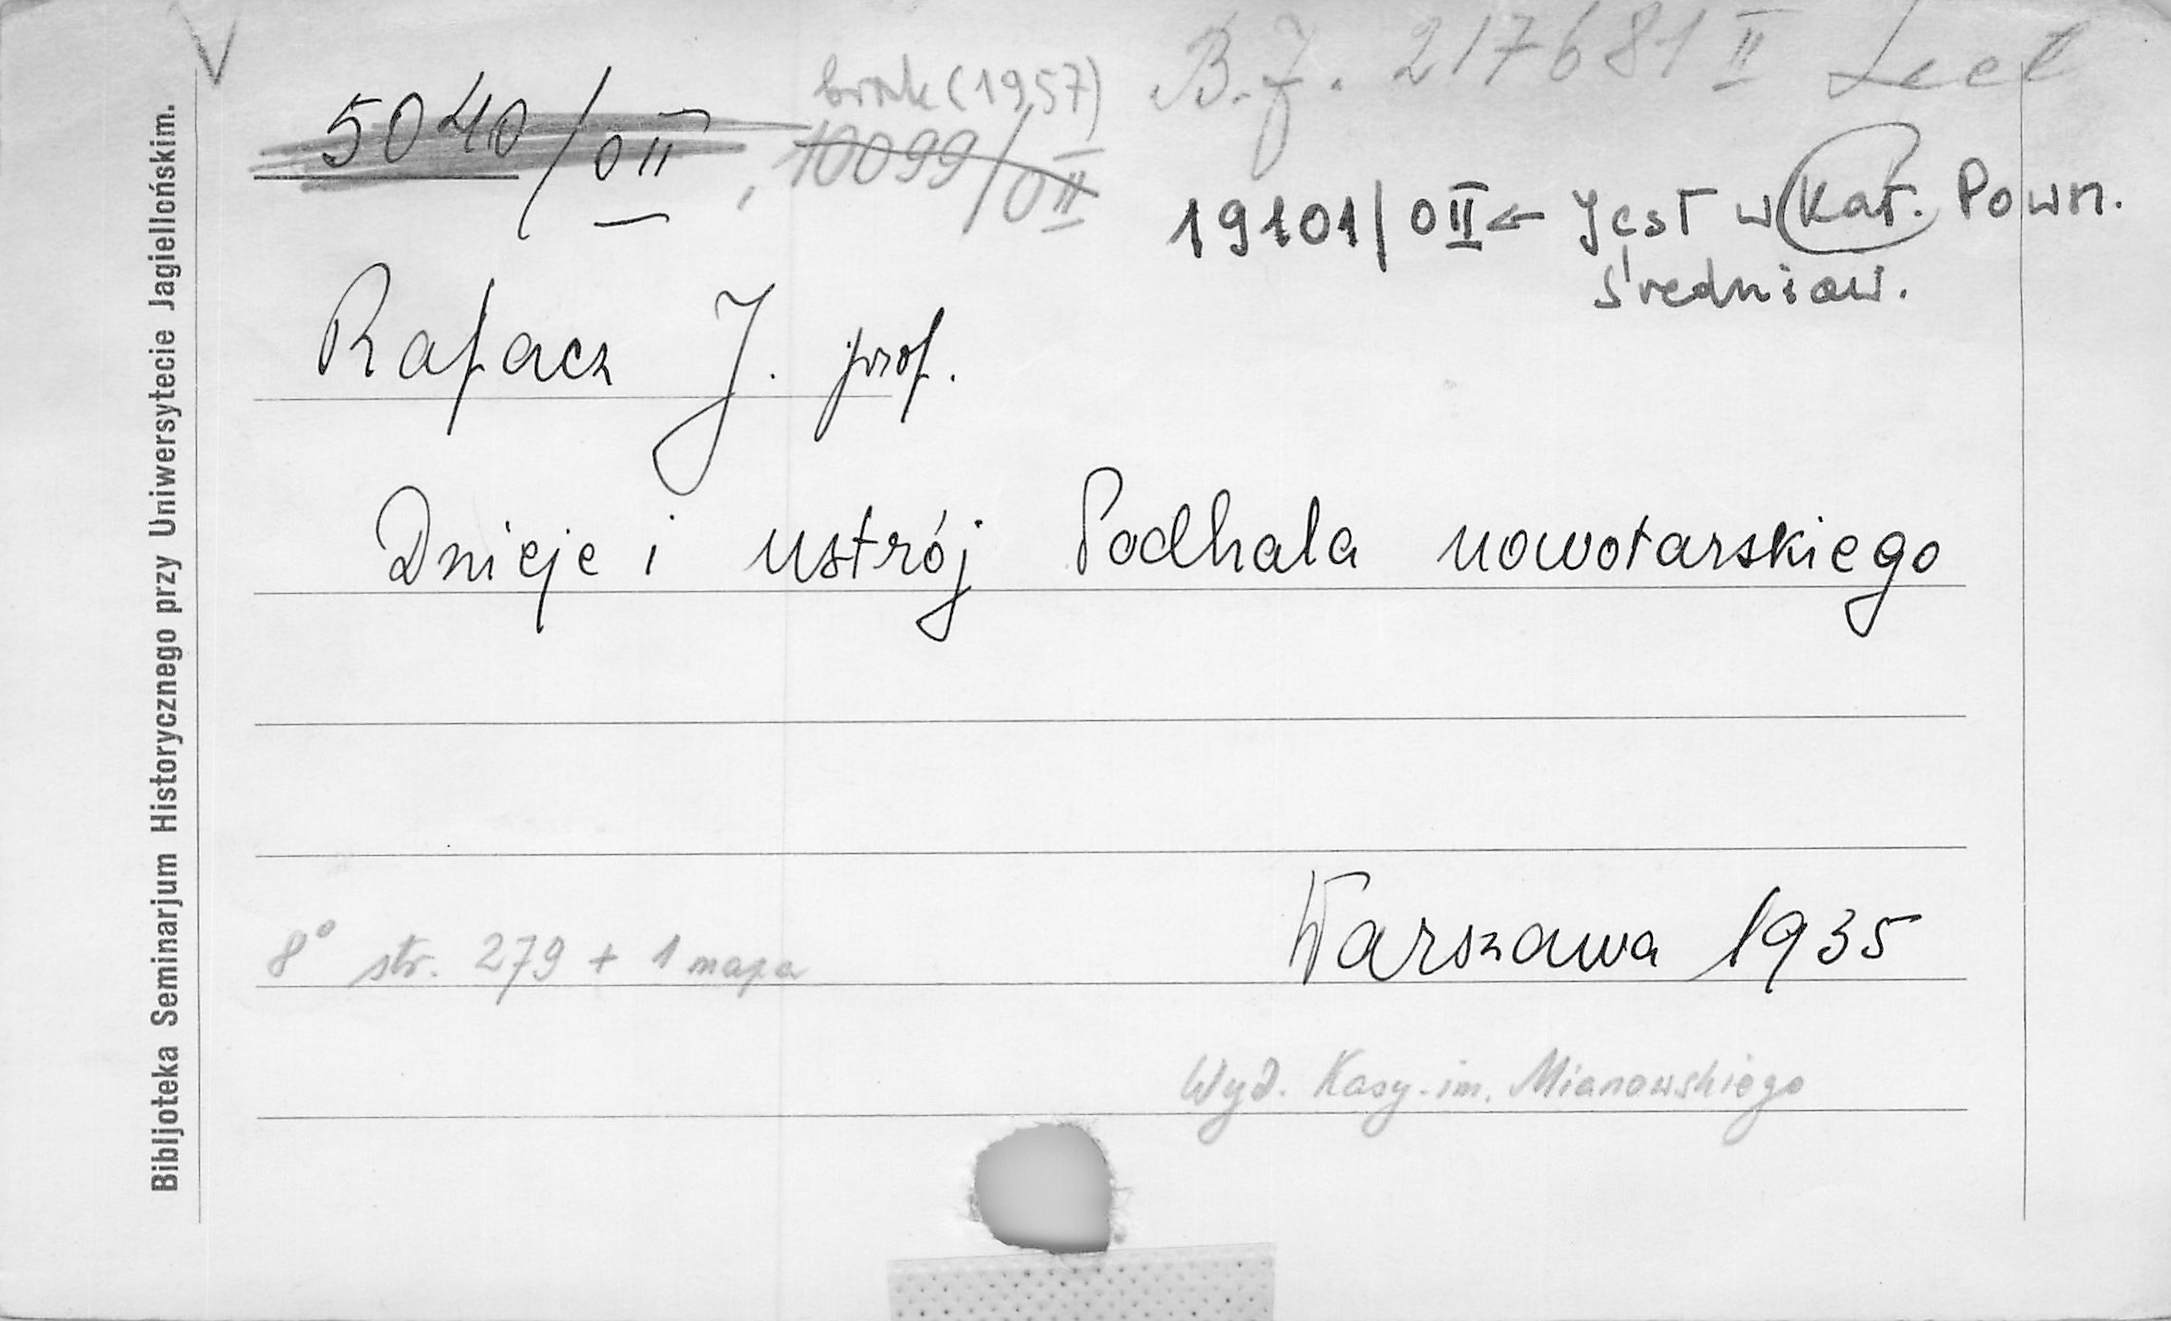 V
B.J. 217681 II Lect
brak (1957)
5040/0II, 10099/0II
19101/0II ← Jest w Kat. Powsz.
średniow.
Rafacz J. prof.
Dzieje i ustrój Podhala nowotarskiego
Warszawa 1935
8° str. 279 + 1 mapa
Wyd. Kasy im. Mianowskiego
Bibljoteka Seminarjum Historycznego przy Uniwersytecie Jagiellońskim.